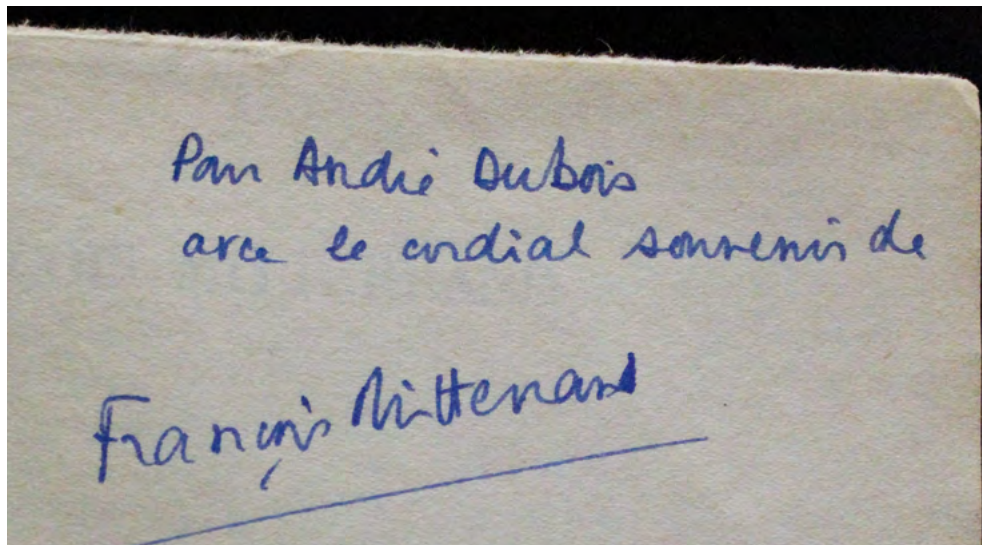 Pour André Dubois
avec le cordial souvenir de
François Mitterrand